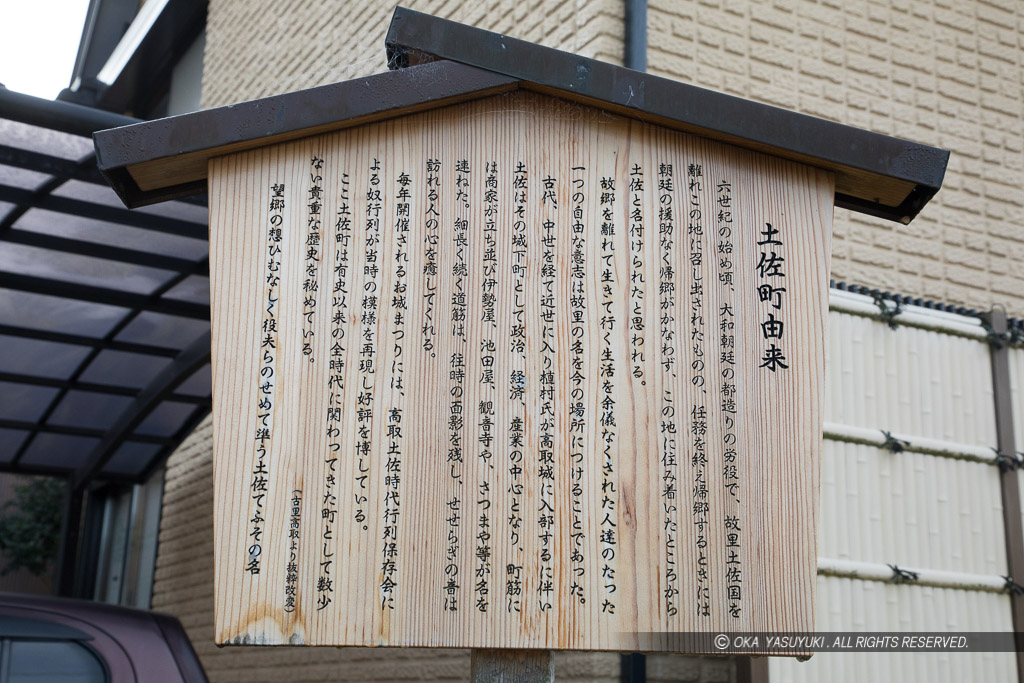 土佐町由来
六世紀の始め頃、大和朝廷の都造りの労役で、故里土佐国を
離れこの地に召し出されたものの、任務を終え帰郷するときには
朝廷の援助なく帰郷がかなわず、この地に住み着いたところから
土佐と名付けられたと思われる。
故郷を離れて生きて行く生活を余儀なくされた人達のたった
一つの自由な意志は故里の名を今の場所につけることであった。
古代、中世を経て近世に入り植村氏が高取城に入部するに伴い
土佐はその城下町として政治、経済、産業の中心となり、町筋に
は商家が立ち並び伊勢屋、池田屋、観音寺や、さつまや等が名を
連ねた。細長く続く道筋は、往時の面影を残し、せせらぎの音は
訪れる人の心を癒してくれる。
毎年開催されるお城まつりには、高取土佐時代行列保存会に
よる奴行列が当時の模様を再現し好評を博している。
ここ土佐町は有史以来の全時代に関わってきた町として数少
ない貴重な歴史を秘めている。
(古里高取より抜粋改変)
望郷の想ひむなしく役夫らのせめて準う土佐てふその名
© OKA YASUYUKI. ALL RIGHTS RESERVED.